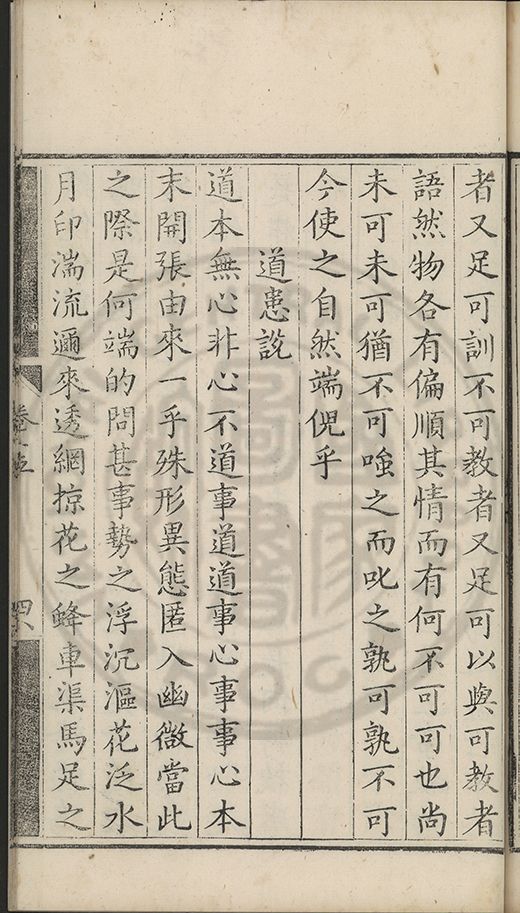 者又足可訓不可教者又足可以與可教者
語然物各有偏順其情而有何不可可也尚
未可未可猶不可嗤之而叱之孰可孰不可
今使之自然端倪乎
道患說
道本無心非心不道事道道事心事事心本
末開張由來一乎殊形異態匿入幽微當此
之際是何端的問甚事勢之浮沉漚花泛水
月印湍流邇來透網掠花之蜂車渠馬足之